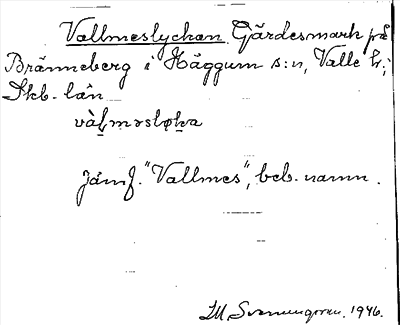 Vallmeslyckan Gärdesmark på
Bränneberg i Häggum s:n, Valle hd;
Skb. län
vàl̠məsløk̠a
Jämf. "Vallmes", beb. namn.
M. Svenungsson. 1946.